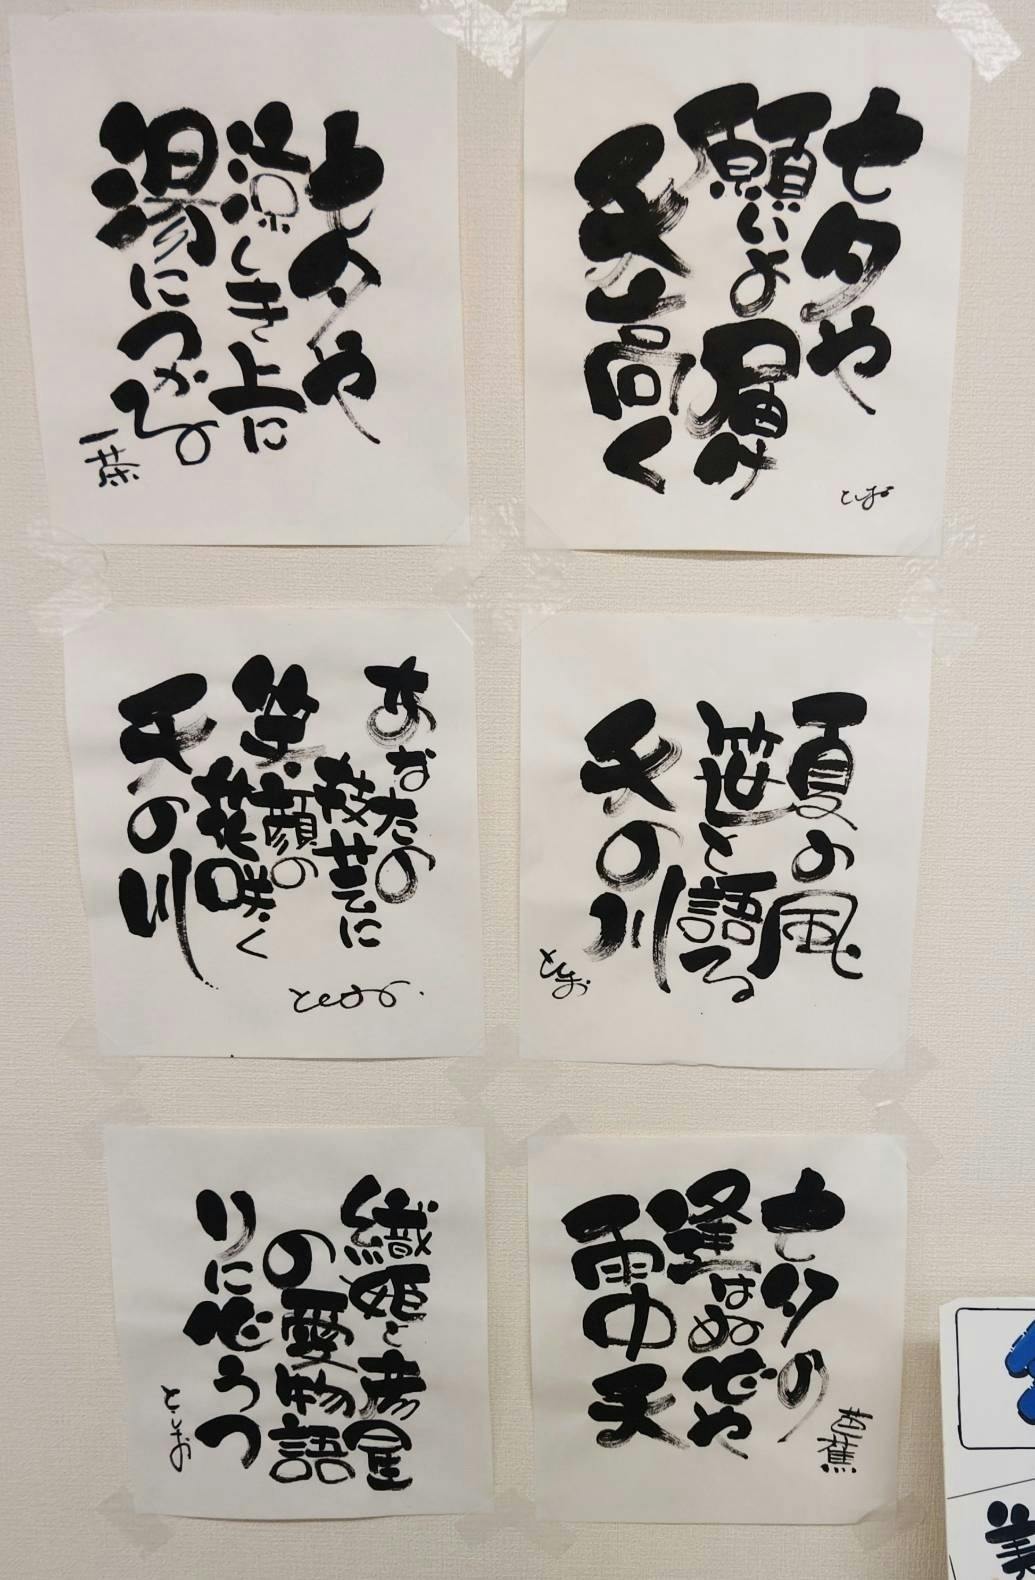 七夕や
願いよ届け
天高く
としお
七夕や
涼しき上に
湯につかる
一茶
夏の風
笹と語る
天の川
としお
あなたの
技芸に
笑顔の
花咲く
天の川
としお
七夕の
逢はぬ心や
雨中天
芭蕉
織姫と彦星
の愛物語
りに心うつ
としお
美